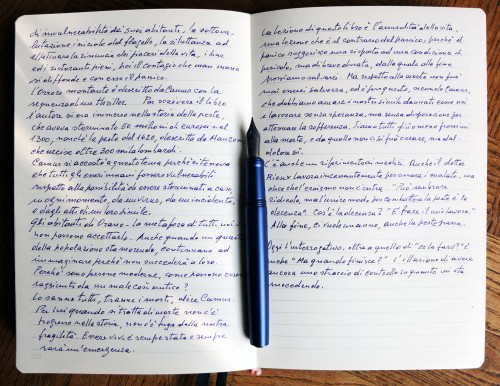 di invulnerabilità dei suoi abitanti, la sottova-
lutazione iniziale del flagello, la riluttanza ad
effettuare la rinuncia dei piaceri della vita, i bar
ed i ristoranti pieni, poi il contagio che man mano
si diffonde e con esso il panico.
L'orrore montante è descritto da Camus con la
sapienza di un thriller. Per scrivere il libro
l'autore si era immerso nella storia della peste,
che aveva sterminato 50 milioni di europei nel
'300, nonché la peste del 1630, descritta da Manzoni
che uccise oltre 300 mila lombardi.
Camus si accostò a questo tema perché riteneva
che tutti gli esseri umani fossero vulnerabili
rispetto alla possibilità di essere sterminati a caso,
in ogni momento, da un virus, da un incidente,
o dagli atti di un loro simile.
Gli abitanti di Orano - la metafora di tutti noi -
non possono accettarlo. Anche quando un quarto
della popolazione sta morendo, continuano ad
immaginare perché non succederà a loro.
Perché sono persone moderne, come possono essere
raggiunti da un male così antico?
Lo sanno tutti, tranne i morti, dice Camus.
Per lui quando si tratta di morte non c'è
progresso nella storia, non c'è fuga dalla nostra
fragilità. Essere vivi è sempre stata e sempre
sarà un'emergenza.
La lezione di questo libro è l'assurdità della vita,
una lezione che è il contrario del panico, perché il
panico suggerisce una risposta ad una condizione di
pericolo, ma di breve durata, dalla quale alla fine
possiamo salvarci. Ma rispetto alla morte non si è
mai essere in salvezza, ed è per questo, secondo Camus,
che dobbiamo amare i nostri simili dannati come noi
e lavorare senza speranza, ma senza disperazione per
attenuare la sofferenza. Siamo tutti più o meno prossimi
alla morte, e da quello non ci si può curare, ma dal
dolore sì.
C'è anche un riferimento ai medici. Anche il dottor
Rieux lavora incessantemente per curare i malati, ma
dice che l'eroismo non c'entra. "Può sembrare
ridicola, ma l'unico modo per combattere la peste è la
decenza". Cos'è la decenza? "È fare il mio lavoro."
Alla fine, ci vuole un anno, anche la peste passa.
Oggi l'interrogativo, oltre a quello di "ce la farò?" è
anche "Ma quando finisce?" L'illusione di avere
ancora uno straccio di controllo su quanto ci sta
succedendo.